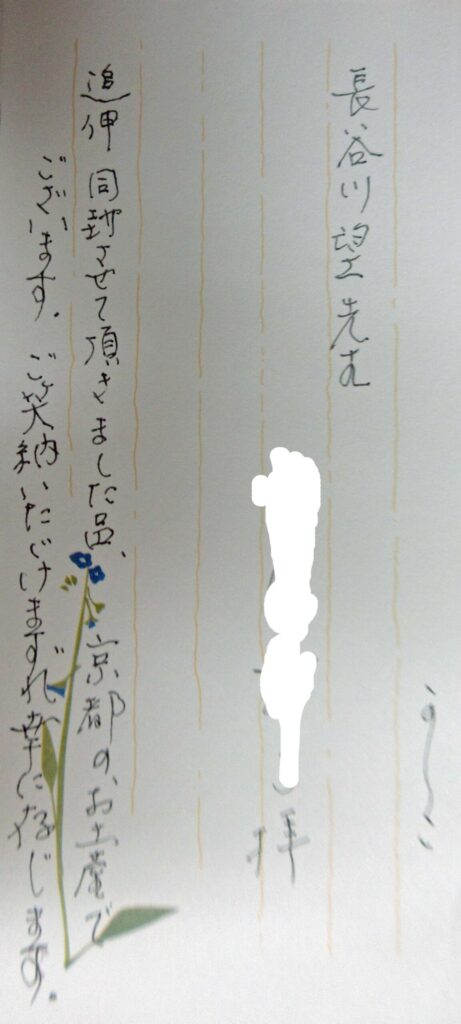 かしこ
長谷川望先生
拝
追伸 同封させて頂きました品、京都のお土産で
ございます。ご笑納いただけますれば幸に存じます。